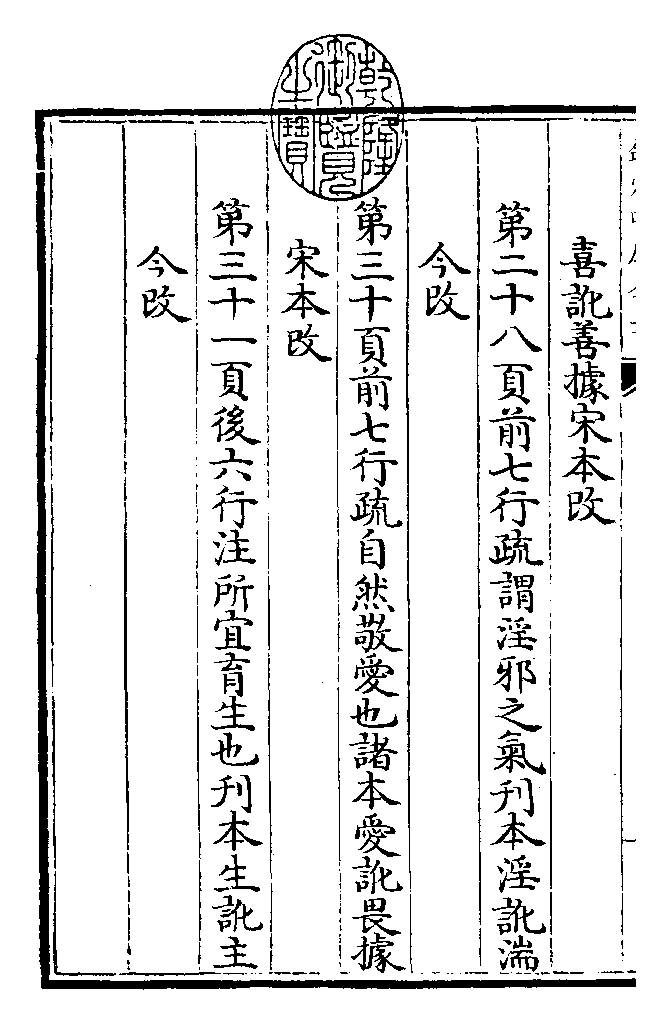 喜訛善據宋本改
第二十八頁前七行疏謂淫邪之氣刋本淫訛湍
今改
第三十頁前七行疏自然敬愛也諸本愛訛畏據
宋本改
第三十一頁後六行注所宜育生也刋本生訛主
今改
乾隆御覽之寶